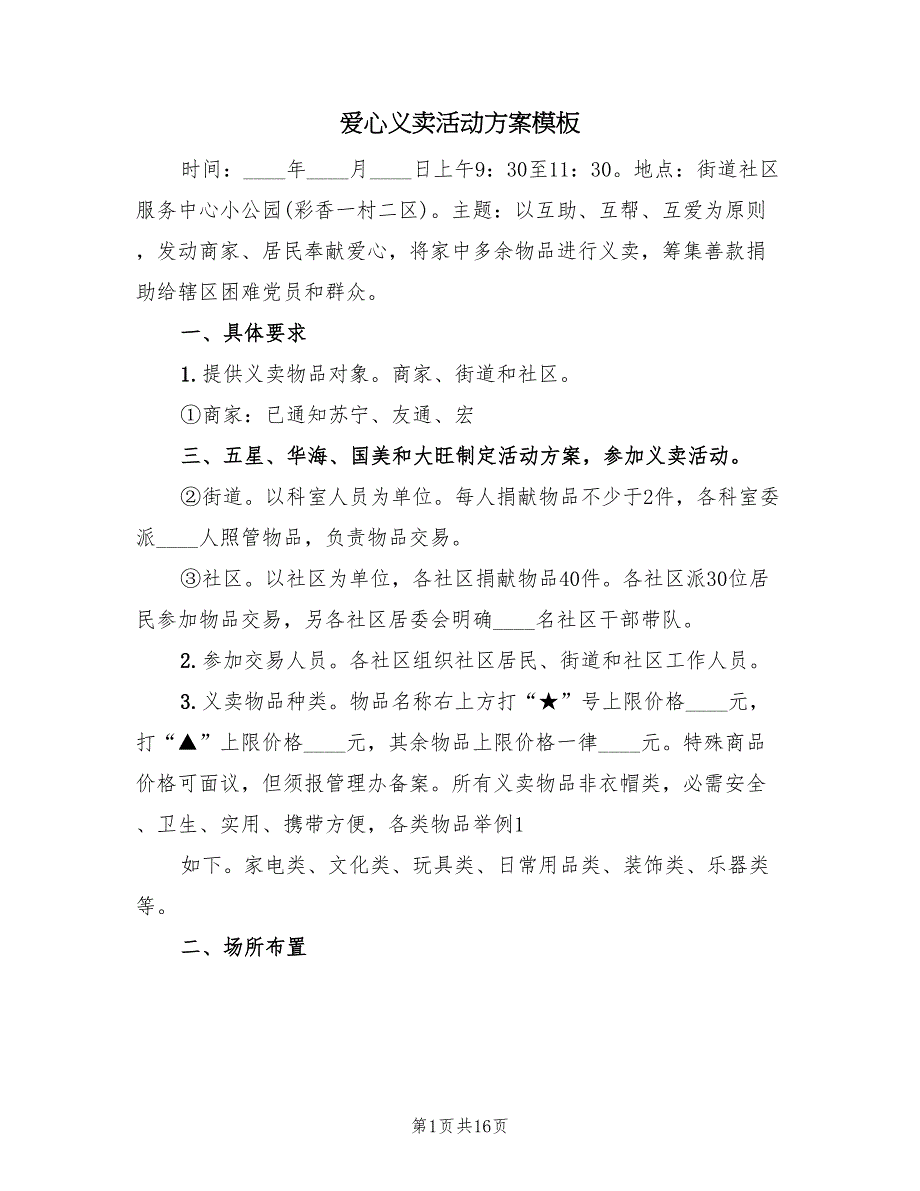 爱心义卖活动方案模板
时间：____年____月____日上午9：30至11：30。地点：街道社区
服务中心小公园(彩香一村二区)。主题：以互助、互帮、互爱为原则
，发动商家、居民奉献爱心，将家中多余物品进行义卖，筹集善款捐
助给辖区困难党员和群众。
一、具体要求
1.提供义卖物品对象。商家、街道和社区。
①商家：已通知苏宁、友通、宏
三、五星、华海、国美和大旺制定活动方案，参加义卖活动。
②街道。以科室人员为单位。每人捐献物品不少于2件，各科室委
派____人照管物品，负责物品交易。
③社区。以社区为单位，各社区捐献物品40件。各社区派30位居
民参加物品交易，另各社区居委会明确____名社区干部带队。
2.参加交易人员。各社区组织社区居民、街道和社区工作人员。
3.义卖物品种类。物品名称右上方打“★”号上限价格____元，
打“▲”上限价格____元，其余物品上限价格一律____元。特殊商品
价格可面议，但须报管理办备案。所有义卖物品非衣帽类，必需安全
、卫生、实用、携带方便，各类物品举例1
如下。家电类、文化类、玩具类、日常用品类、装饰类、乐器类
等。
二、场所布置
第1页共16页